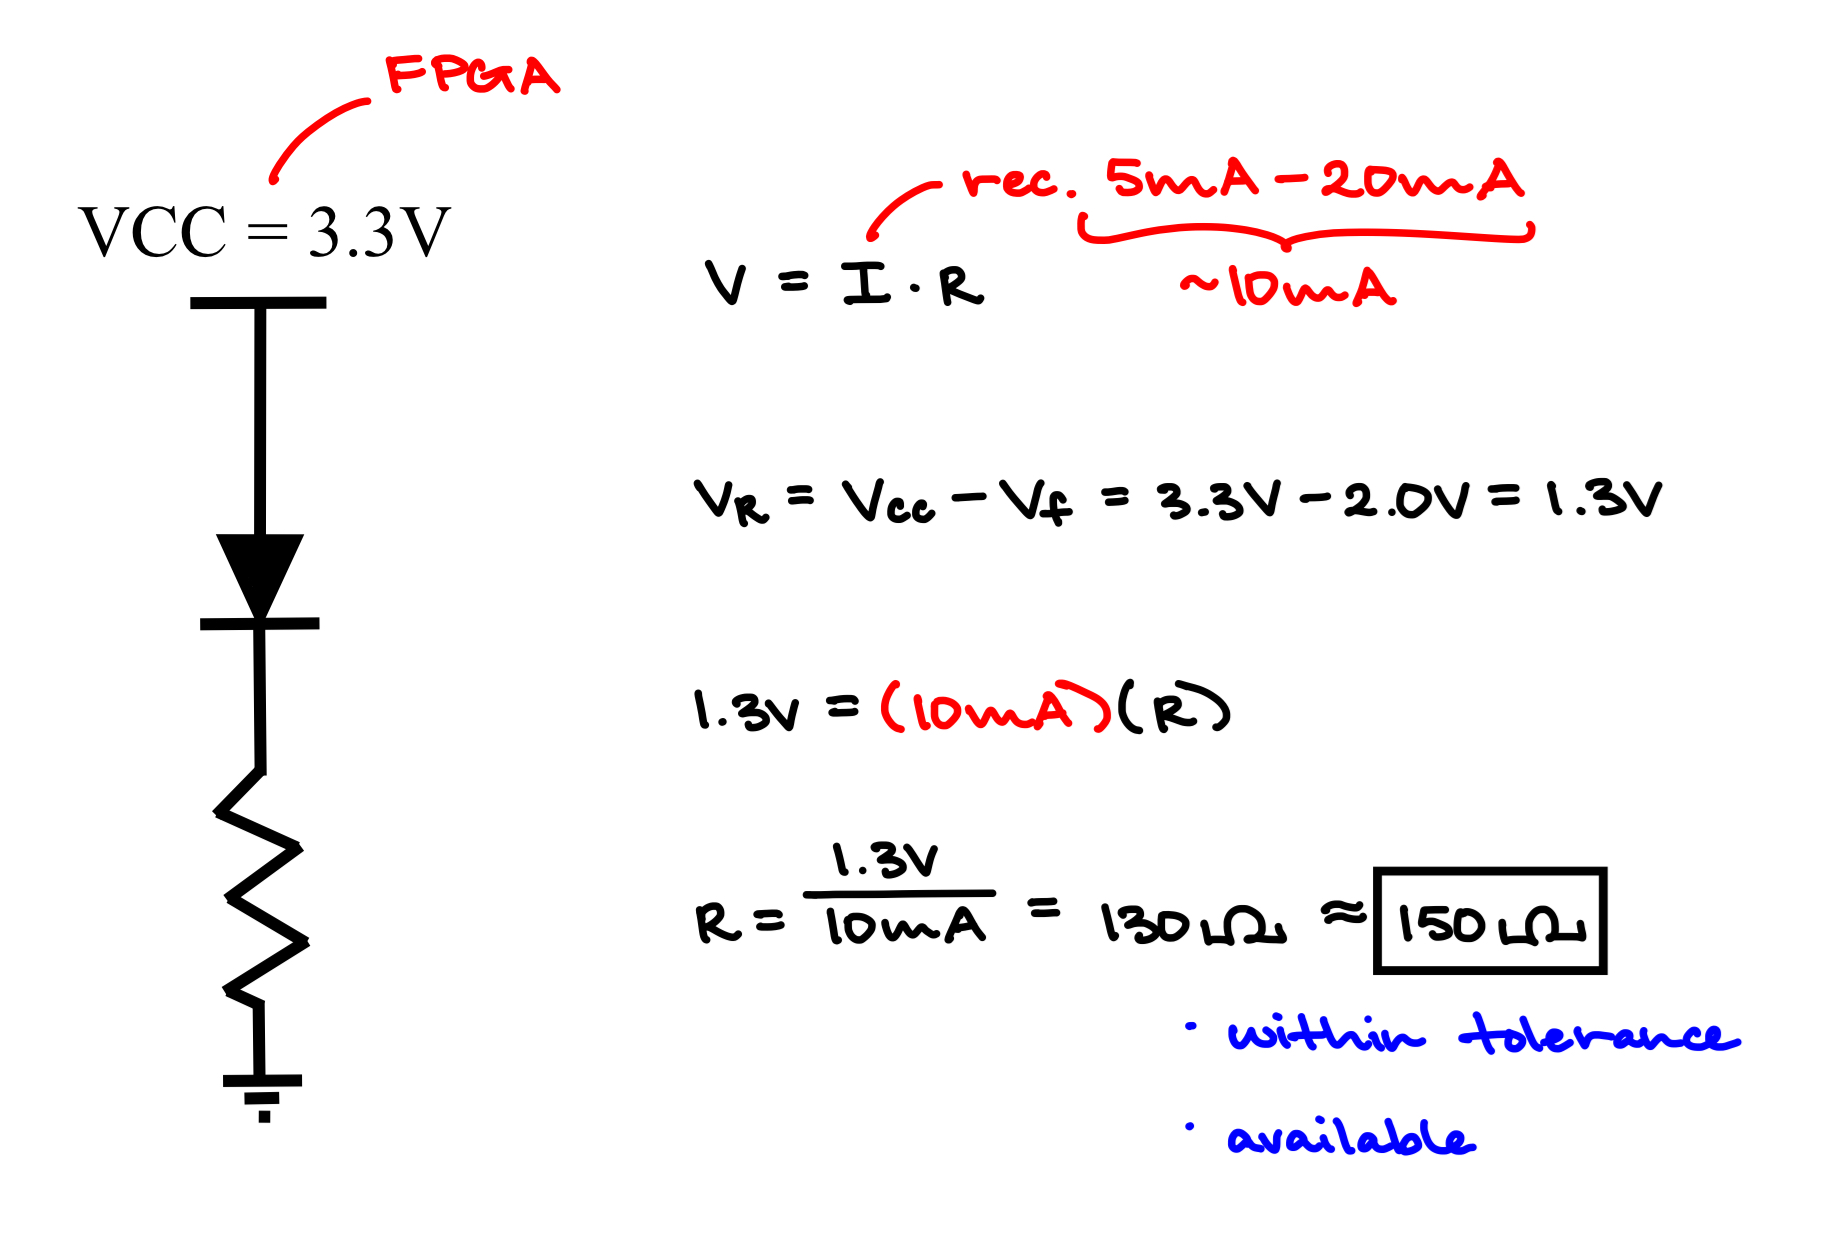 FPGA
VCC = 3.3V
rec. 5mA - 20mA
~10mA
V = I · R
VR = Vcc - Vf = 3.3V - 2.0V = 1.3V
1.3V = (10mA)(R)
R = 1.3V / 10mA = 130Ω ≈ 150Ω
· within tolerance
· available